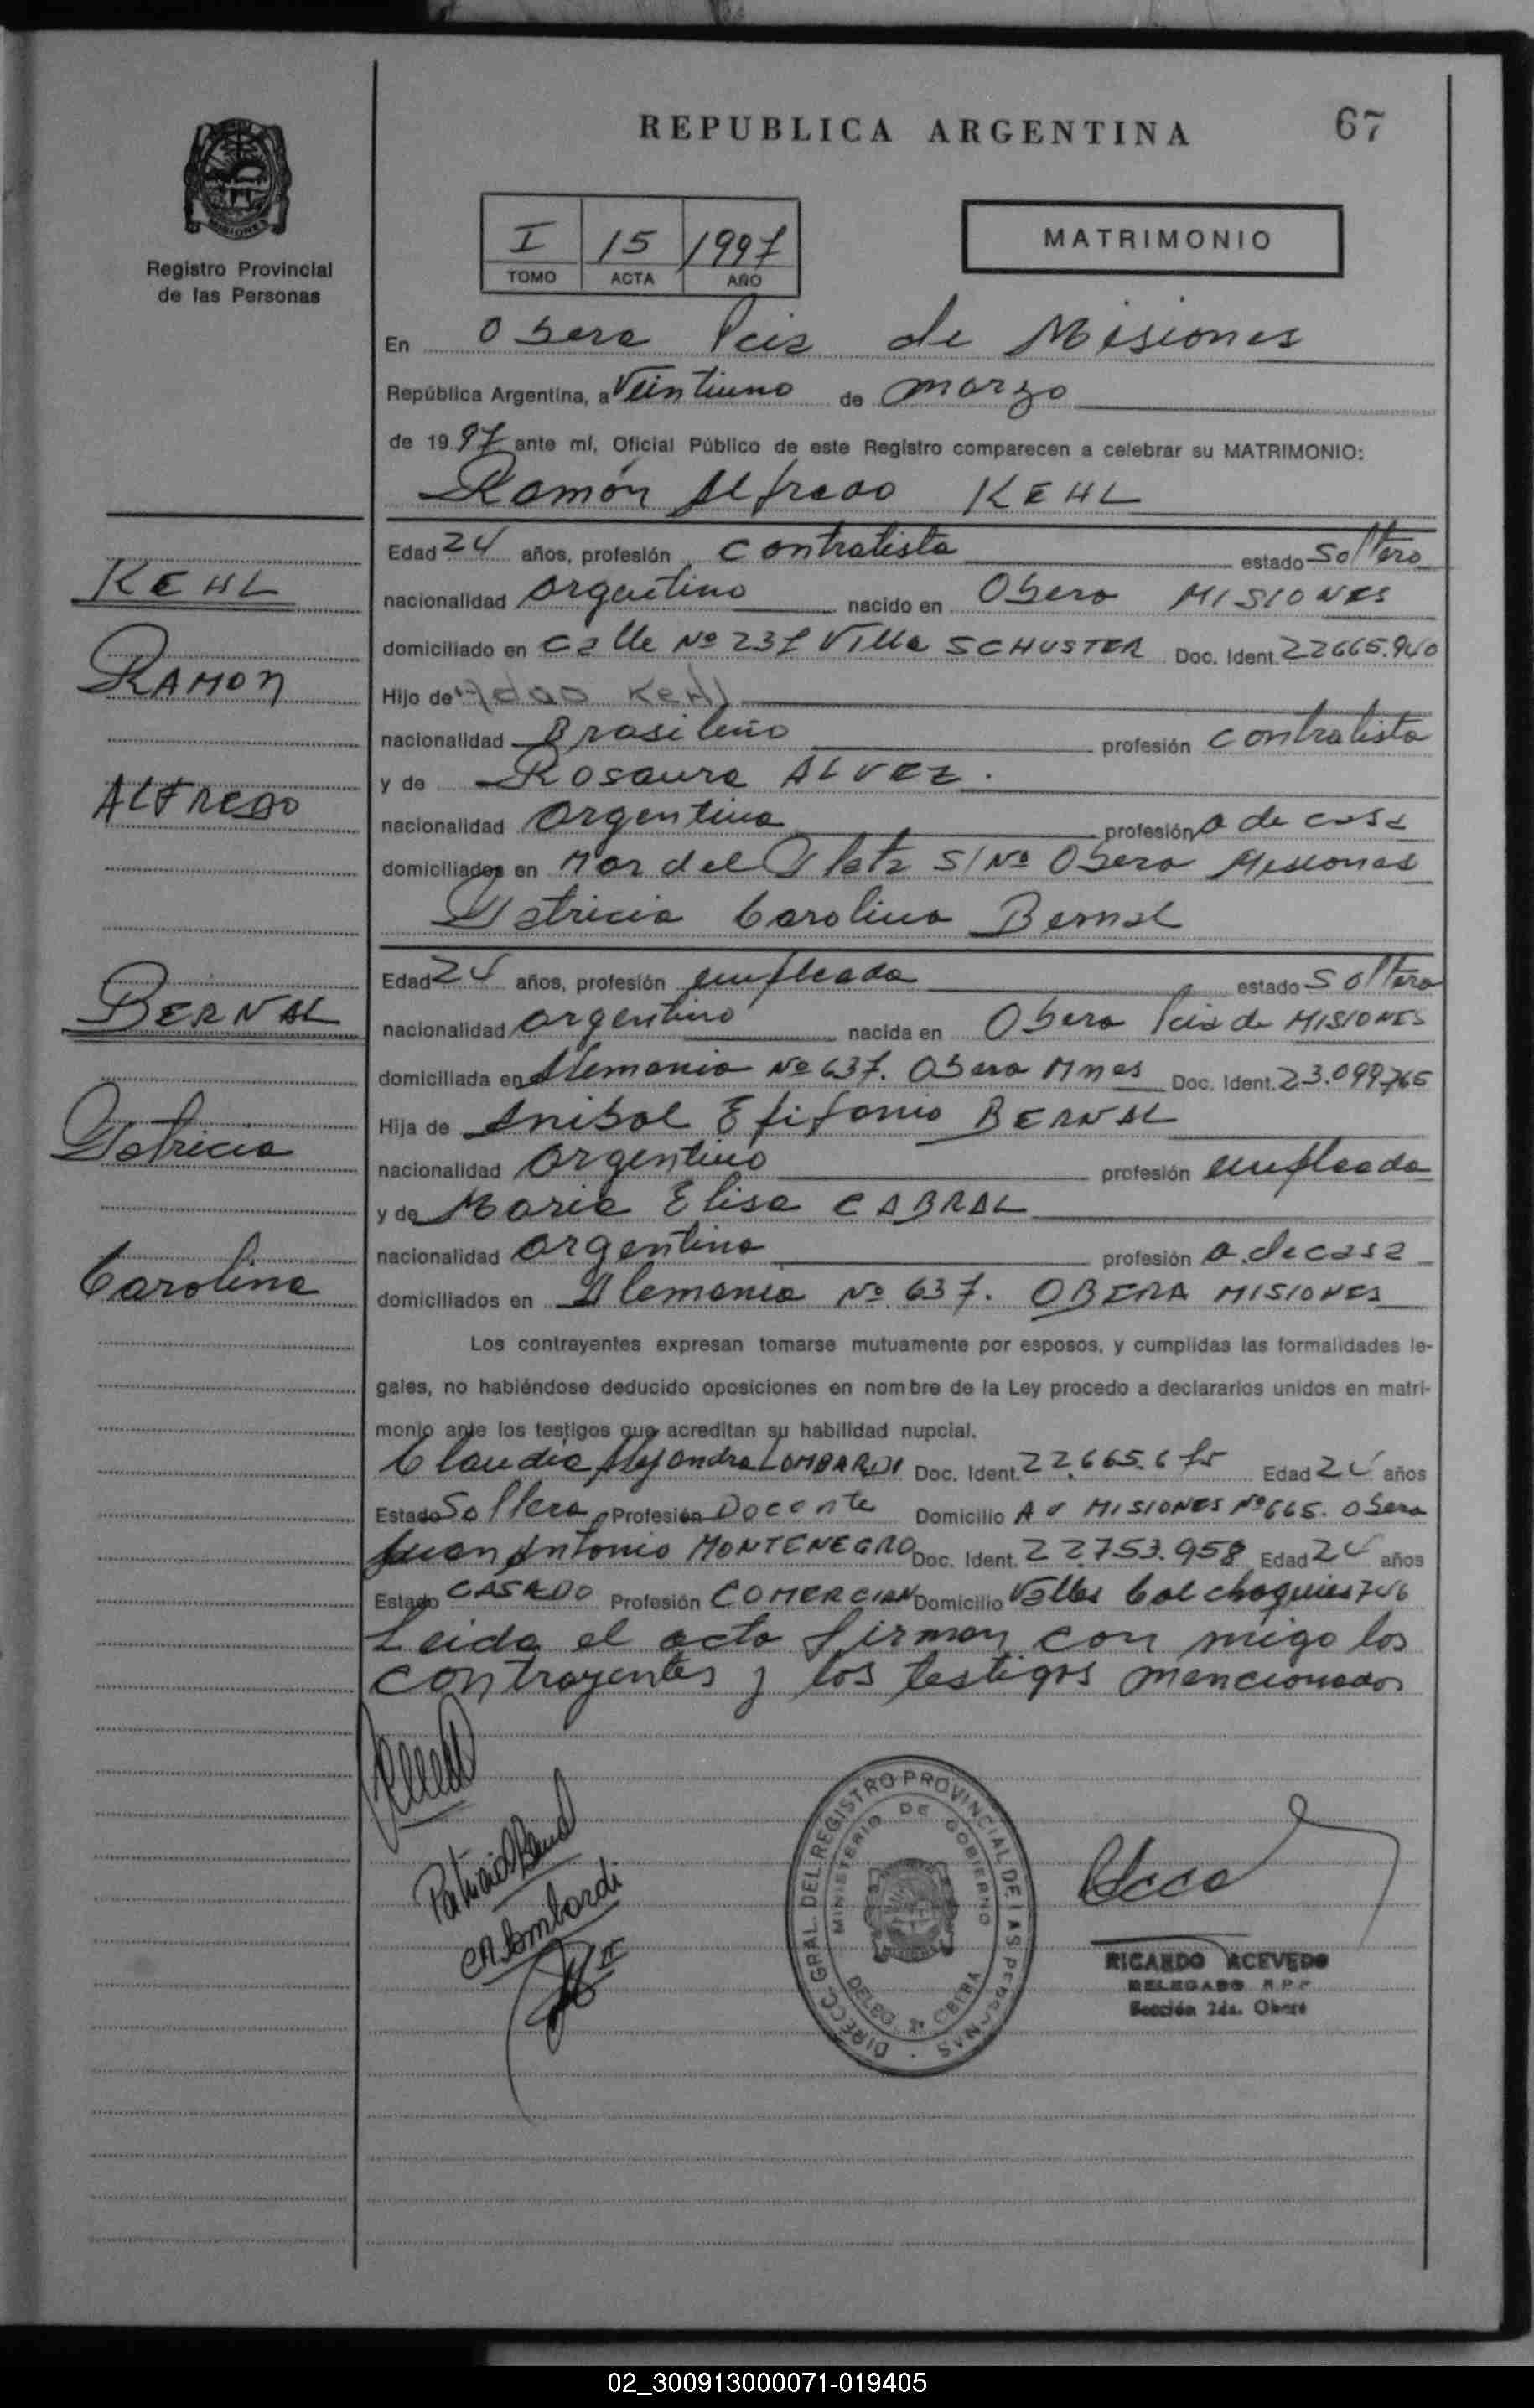 REPUBLICA ARGENTINA
67
MISIONES
Registro Provincial
de las Personas
I 15 1997
TOMO ACTA AÑO
MATRIMONIO
En Obera Pcia de Misiones
República Argentina, a Veintiuno de marzo
de 1997 ante mí, Oficial Público de este Registro comparecen a celebrar su MATRIMONIO:
Ramón Alfredo KEHL
Edad 24 años, profesión contratista estado Soltero
KEHL
nacionalidad argentino nacido en Obera MISIONES
domiciliado en Calle Nº 237 Villa SCHUSTER Doc. Ident. 22665.940
RAMON
Hijo de Adao KeHl
nacionalidad Brasileño profesión contratista
y de Rosaura ALVEZ.
ALFREDO
nacionalidad argentina profesión a de casa
domiciliados en Mar del Plata S/Nº Obera Misiones
Patricia Carolina Bernal
Edad 24 años, profesión empleada estado Soltera
BERNAL
nacionalidad argentina nacida en Obera Pcia de MISIONES
domiciliada en Alemania Nº 637. Obera Mnes Doc. Ident. 23.099.765
Hija de Anibal Epifanio BERNAL
Patricia
nacionalidad argentino profesión empleado
y de Maria Elisa CABRAL
nacionalidad argentina profesión a. de casa
Carolina
domiciliados en Alemania Nº 637. OBERA MISIONES
Los contrayentes expresan tomarse mutuamente por esposos, y cumplidas las formalidades le-
gales, no habiéndose deducido oposiciones en nombre de la Ley procedo a declararlos unidos en matri-
monio ante los testigos que acreditan su habilidad nupcial.
Claudia Alejandra LOMBARDI Doc. Ident. 22.665.6 Edad 24 años
Estado Soltera Profesión Docente Domicilio Av MISIONES Nº 665. Obera
Juan Antonio MONTENEGRO Doc. Ident. 22.753.958 Edad 24 años
Estado CASADO Profesión COMERCIAN Domicilio Valles Calchaquies 746
Leida el acta firman con migo los
contrayentes y los testigos mencionados
Patricia Bernal
CALombardi
DIRECC. GRAL. DEL REGISTRO PROVINCIAL DE LAS PERSONAS
MINISTERIO DE GOBIERNO
DELEG. 2ª OBERA
RICARDO ACEVEDO
DELEGADO R.P.P.
Sección 2da. Oberá
02_300913000071-019405